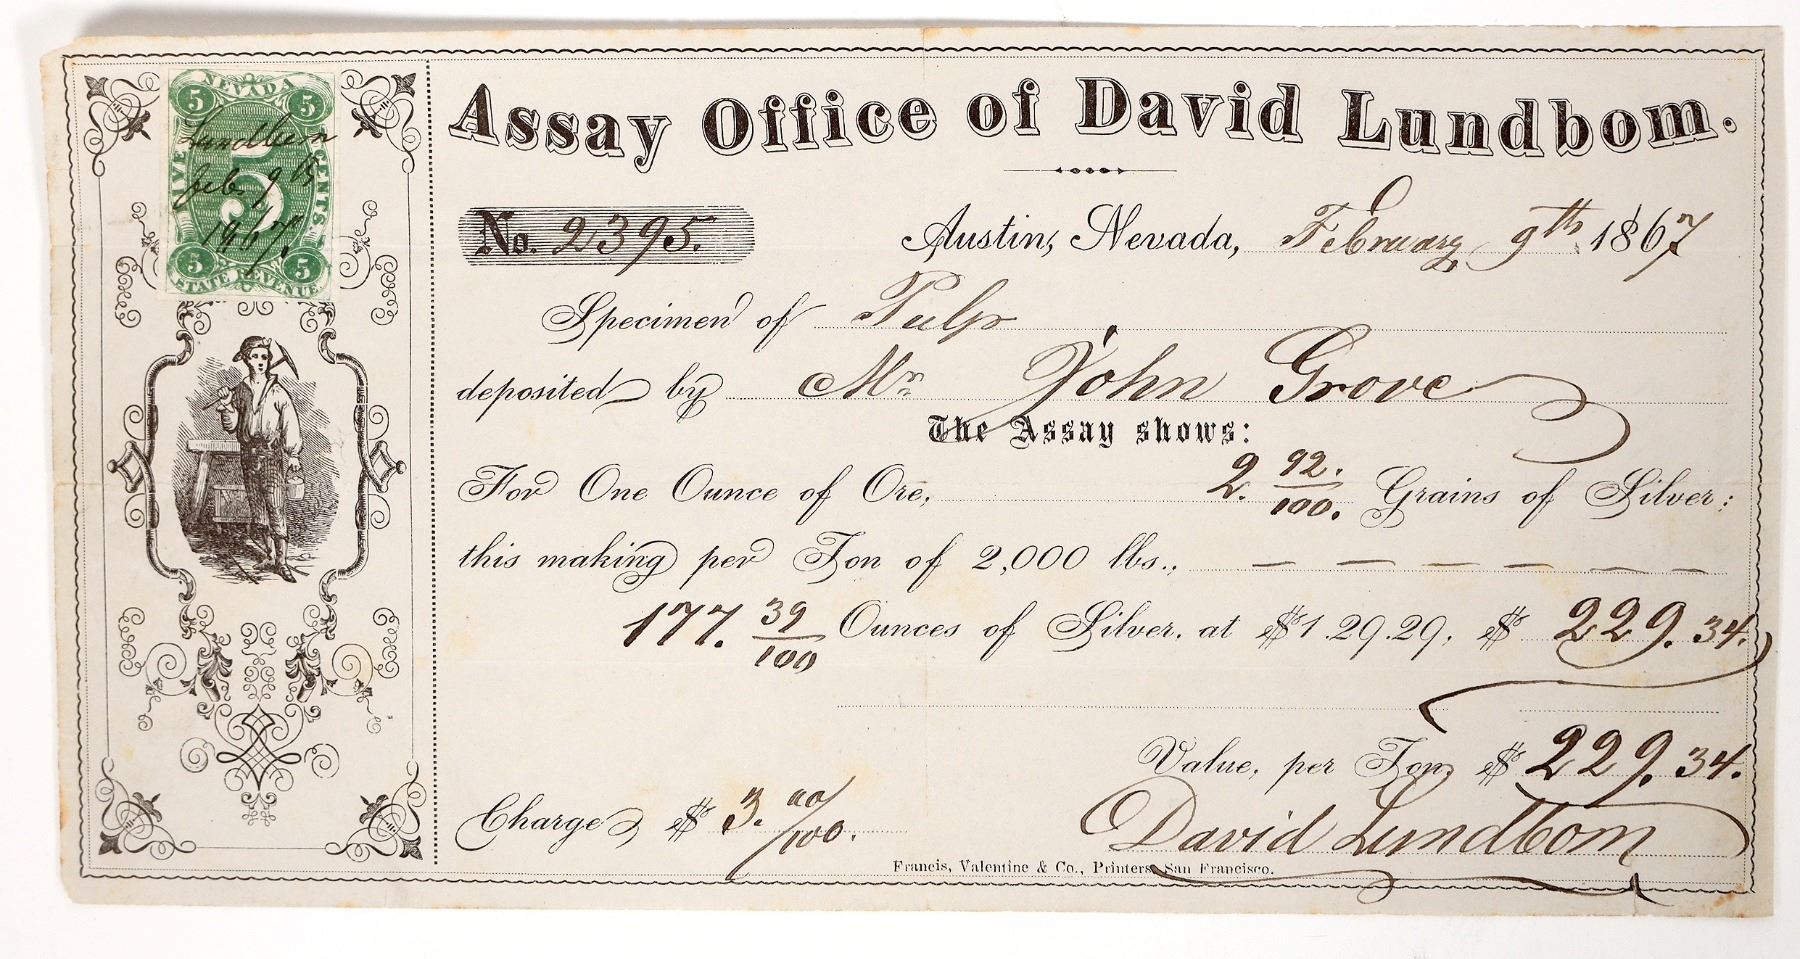 NEVADA
5 5
FIVE CENTS.
5
Lundbom
Feb. 9th
1867.
5 5
STATE REVENUE
Assay Office of David Lundbom.
No. 2395. Austin, Nevada, February 9th 1867
Specimen of Pulp
deposited by Mr John Grove
The Assay shows:
For One Ounce of Ore, 2. 92/100. Grains of Silver:
this making per Ton of 2,000 lbs., — — — — — —
177. 39/100 Ounces of Silver, at $1.29.29, $ 229.34.
Value, per Ton, $ 229.34.
Charge, $ 3. 00/100.
David Lundbom
Francis, Valentine & Co., Printers, San Francisco.